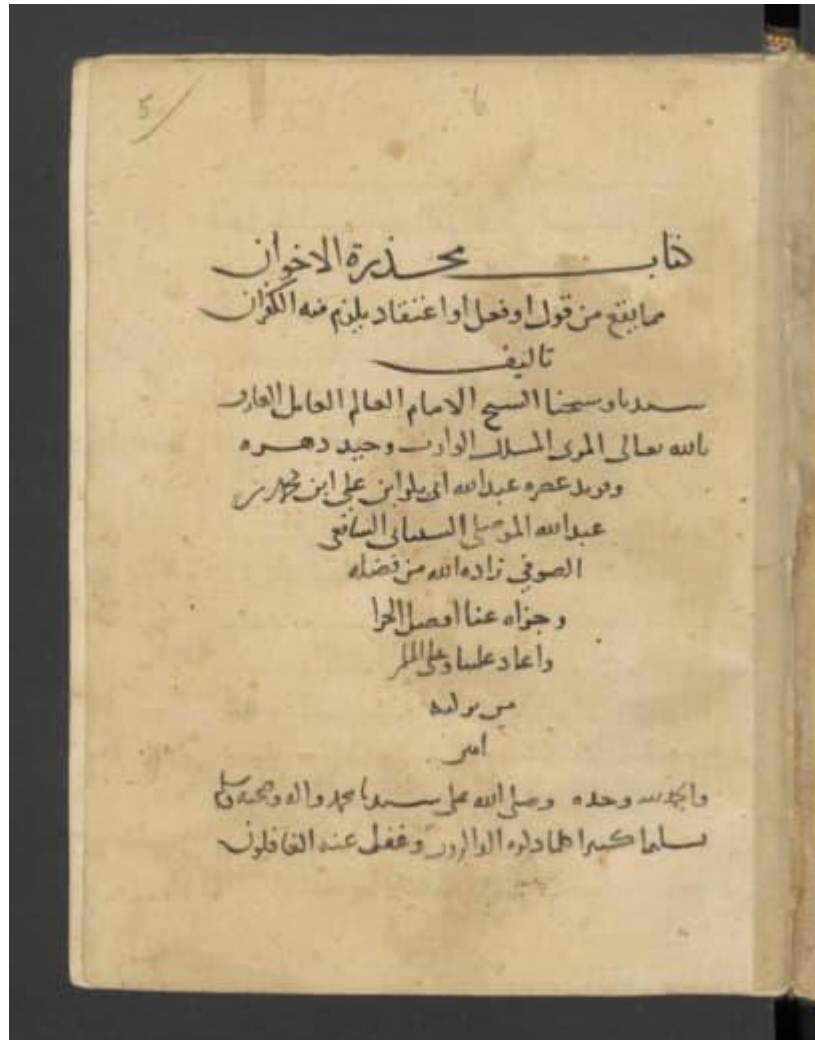 5
6
كتاب محذرة الاخوان
مما يقع من قول او فعل او اعتقاد يلزم منه الكفران
تاليف
سيدنا وشيخنا الشيخ الامام العالم العامل العارف
بالله تعالى المربى المسلك الوارث وحيد دهره
وفريد عصره عبد الله ابن علي ابن
عبد الله الموصلي الشيباني الشافعي
الصوفي زاده الله من فضله
وجزاه عنا افضل الجزا
واعاد علينا وعلى
من بركته
امين
والحمد لله وحده وصلى الله على سيدنا محمد واله وصحبه وسلم
تسليما كثيرا كلما ذكره الذاكرون وغفل عنه الغافلون